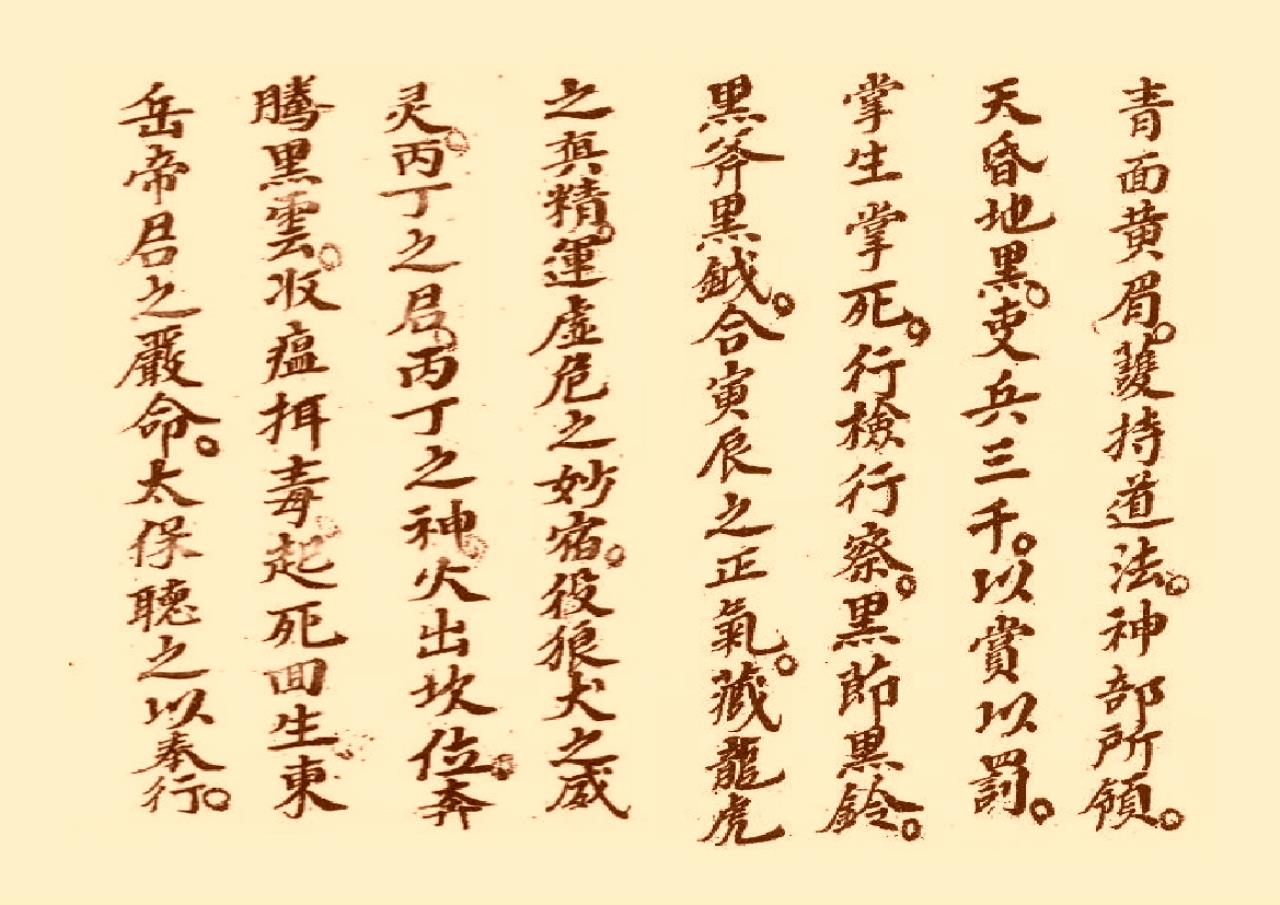 青面黄眉。護持道法。神部所領。
天昏地黒。吏兵三千。以賞以罰。
掌生掌死。行檢行察。黒節黒鈴。
黒斧黒鉞。合寅辰之正氣。藏龍虎
之真精。運虛危之妙宿。役狼犬之威
灵。丙丁之君。丙丁之神。火出坎位。奔
騰黒雲。收瘟揖毒。起死回生。東
岳帝君之嚴命。太保聽之以奉行。